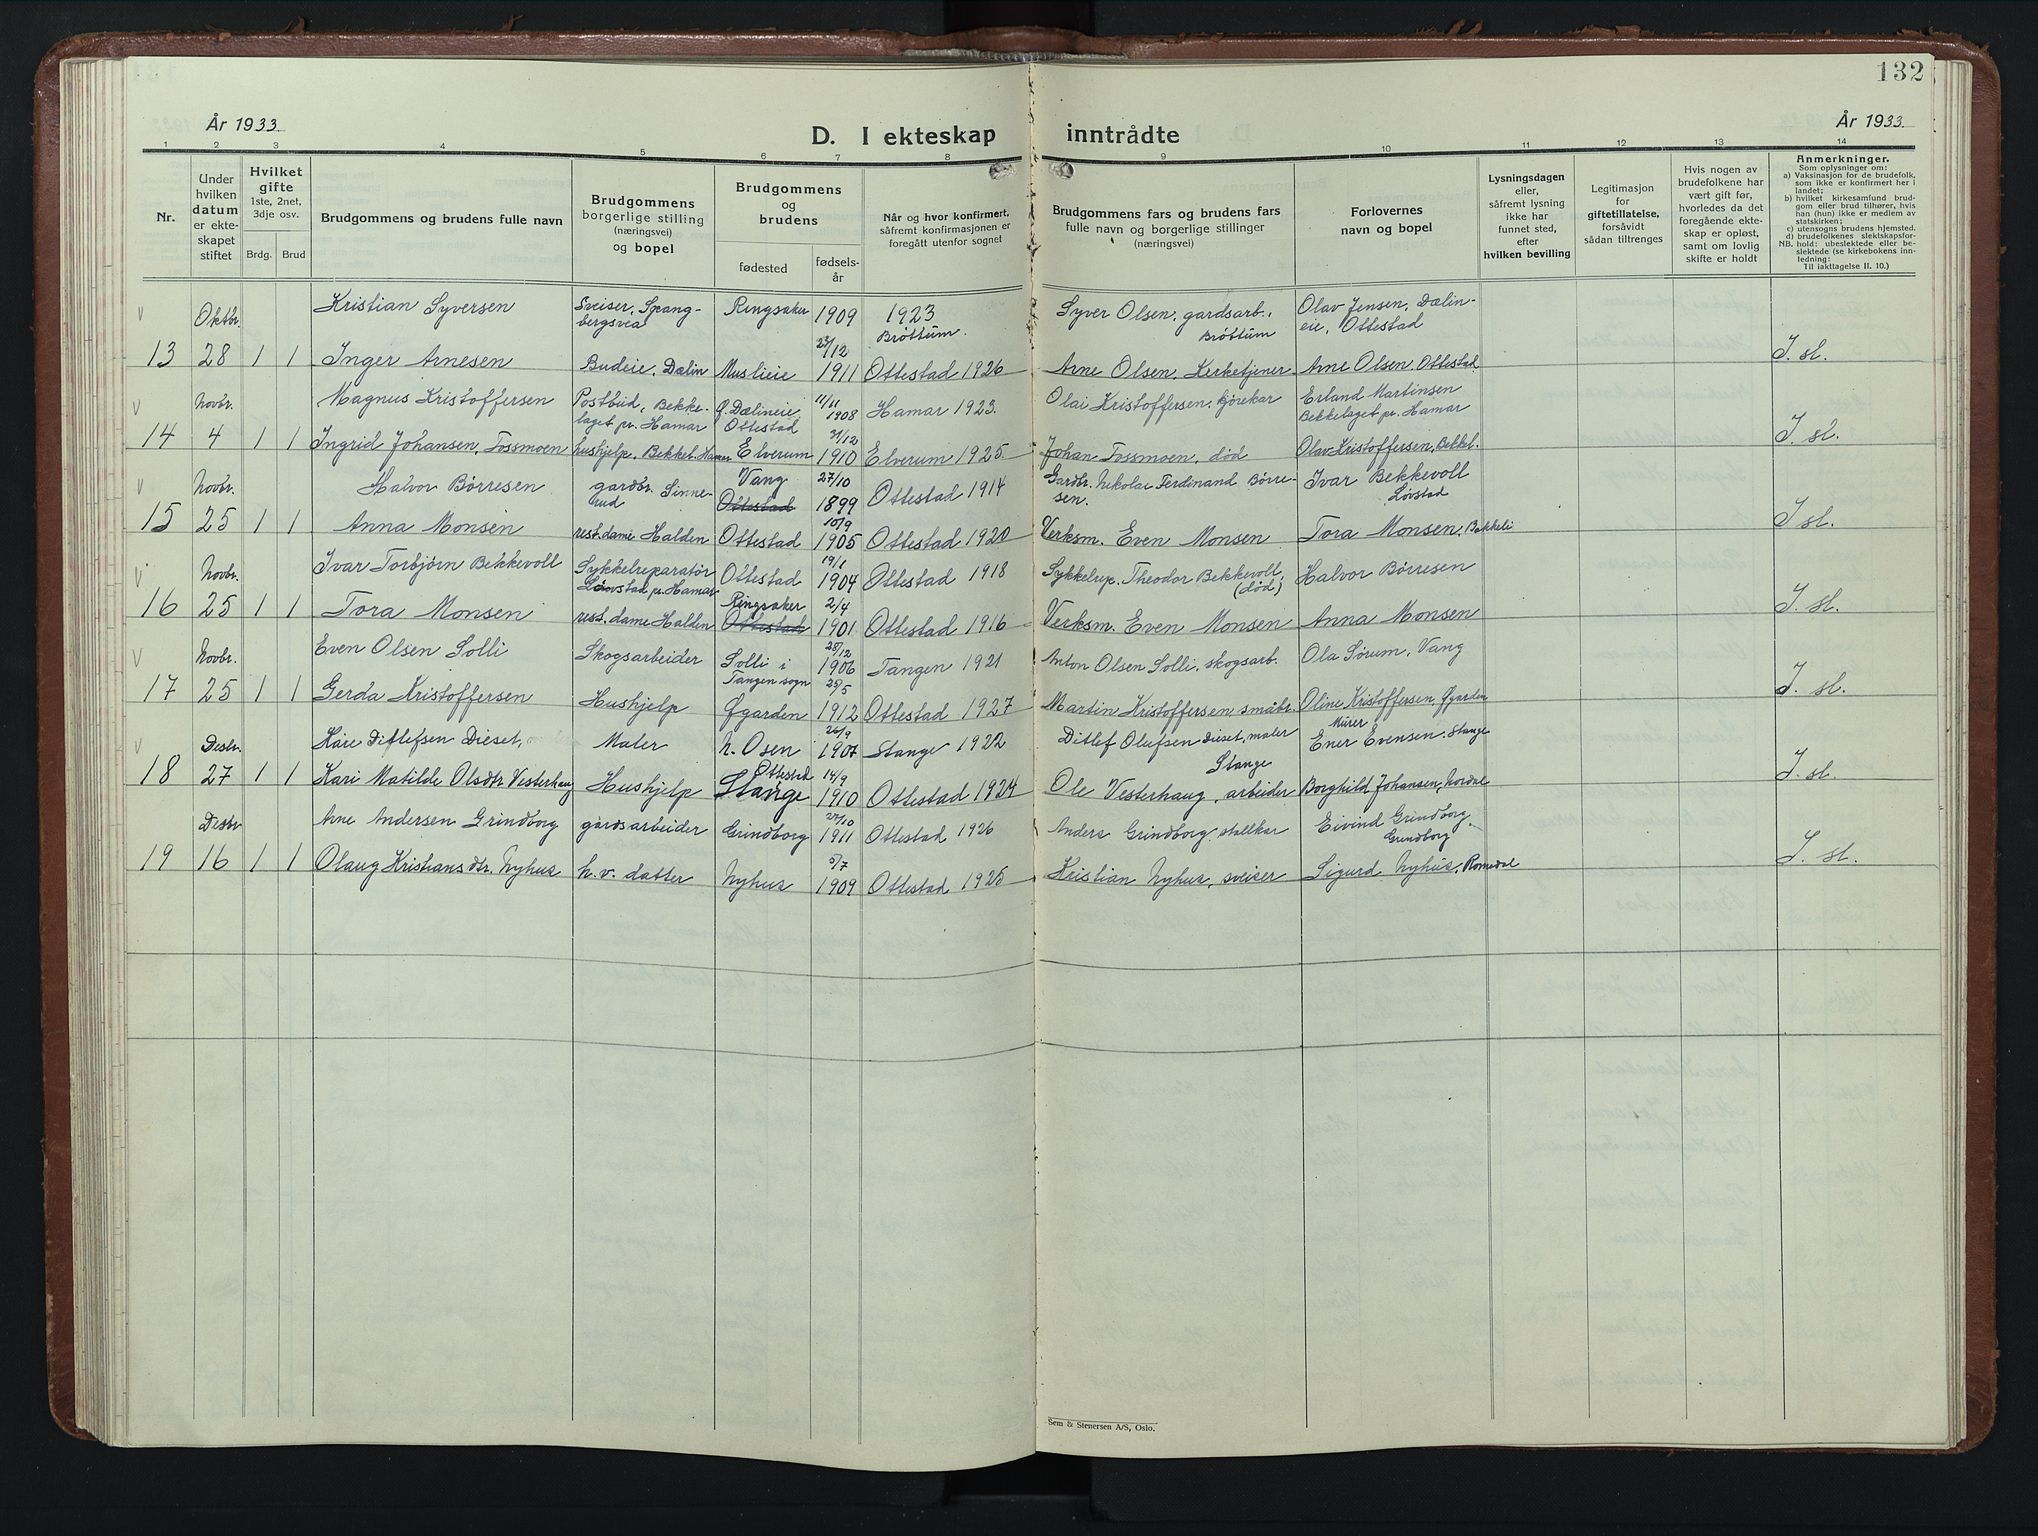 132
År 1933.
D. I ekteskap inntrådte
År 1933.
1 2 3 4 5 6 7 8 9 10 11 12 13 14
Nr.
Under hvilken datum er ekteskapet stiftet
Hvilket gifte 1ste, 2net, 3dje osv.
Brdg. Brud
Brudgommens og brudens fulle navn
Brudgommens borgerlige stilling (næringsvei) og bopel
Brudgommens og brudens
fødested
fødselsår
Når og hvor konfirmert, såfremt konfirmasjonen er foregått utenfor sognet
Brudgommens fars og brudens fars fulle navn og borgerlige stillinger (næringsvei)
Forlovernes navn og bopel
Lysningsdagen eller, såfremt lysning ikke har funnet sted, efter hvilken bevilling
Legitimasjon for giftetillatelse, forsåvidt sådan tiltrenges
Hvis nogen av brudefolkene har vært gift før, hvorledes da det foregående ekteskap er opløst, samt om lovlig skifte er holdt
Anmerkninger.
Som oplysninger om:
a) Vaksinasjon for de brudefolk, som ikke er konfirmert her i landet;
b) hvilket kirkesamfund brudgom eller brud tilhører, hvis han (hun) ikke er medlem av statskirken;
c) utensogns brudens hjemsted.
d) brudefolkenes slektskapsforhold: ubeslektede eller beslektede (se kirkebokens innledning:
NB.
Til iakttagelse II. 10.)
v Oktbr. Kristian Syversen Sveiser, Spangbergsvea Ringsaker 1909 1923 Brøttum. Syver Olsen, gardsarb., Brøttum Olav Jensen, Dælineie, Ottestad
13 28 1 1 Inger Arnesen Budeie, Dælin Muslieie 23/12 1911 Ottestad 1926 Arne Olsen, Kirketjener Arne Olsen, Ottestad I. sl.
v Novbr. Magnus Kristoffersen Postbud, Bekkelaget pr. Hamar Ø. Dælineie, Ottestad 11/11 1908 Hamar 1923. Olai Kristoffersen, kjørekar Erland Martinsen Bekkelaget pr. Hamar
14 4 1 1 Ingrid Johansen, Fossmoen hushjelp, Bekkel. Hamar Elverum 31/12 1910 Elverum 1925 Johan Fossmoen, død Olav Kristoffersen, Bekkel. I. sl.
v Novbr. Halvor Børresen gardbr. Sinnerud Vang Ottestad 27/10 1899 Ottestad 1914 Gardbr. Nikolai Ferdinand Børresen. Ivar Bekkevoll Løvstad
15 25 1 1 Anna Monsen rest. dame Halden Ottestad 10/9 1905 Ottestad 1920 Verksm. Even Monsen Tora Monsen, Bekkeli I sl.
v Novbr. Ivar Torbjørn Bekkevoll Sykkelreparatør Løvstad pr. Hamar Ottestad 19/1 1904 Ottestad 1918 Sykkelrep. Theodor Bekkevoll, (død) Halvor Børresen
16 25 1 1 Tora Monsen rest. dame Halden Ringsaker Ottestad 2/4 1901 Ottestad 1916 Verksm. Even Monsen Anna Monsen I. sl.
v Novbr. Even Olsen Solli Skogsarbeider Solli i Tangen sogn 28/12 1906 Tangen 1921 Anton Olsen Solli, skogsarb. Ola Sørum, Vang
17 25 1 1 Gerda Kristoffersen Hushjelp Øgarden 25/5 1912 Ottestad 1927 Martin Kristoffersen, småbr. Oline Kristoffersen, Øgarden I. sl.
v Desbr. Kåre Ditlefsen Dieset, Maler N. Osen 26/9 1907 Stange 1922 Ditlef Olufsen Dieset, maler Stange Murer Ener Evensen, Stange
18 27 1 1 Kari Matilde Olsdtr Vesterhaug Hushjelp Ottestad Stange 14/9 1910 Ottestad 1924 Ole Vesterhaug, arbeider Borghild Johansen, Nordal I. sl.
Desbr Arne Andersen Grindborg gårdsarbeider Grindborg 27/10 1911 Ottestad 1926 Anders Grindborg, stallkar Eivind Grindborg, Grindborg
19 16 1 1 Olaug Kristiansdtr. Nyhus h.v. datter Nyhus 5/7 1909 Ottestad 1925 Kristian Nyhus, sveiser Sigurd Nyhus, Romedal I. sl.
Sem & Stenersen A/S, Oslo.